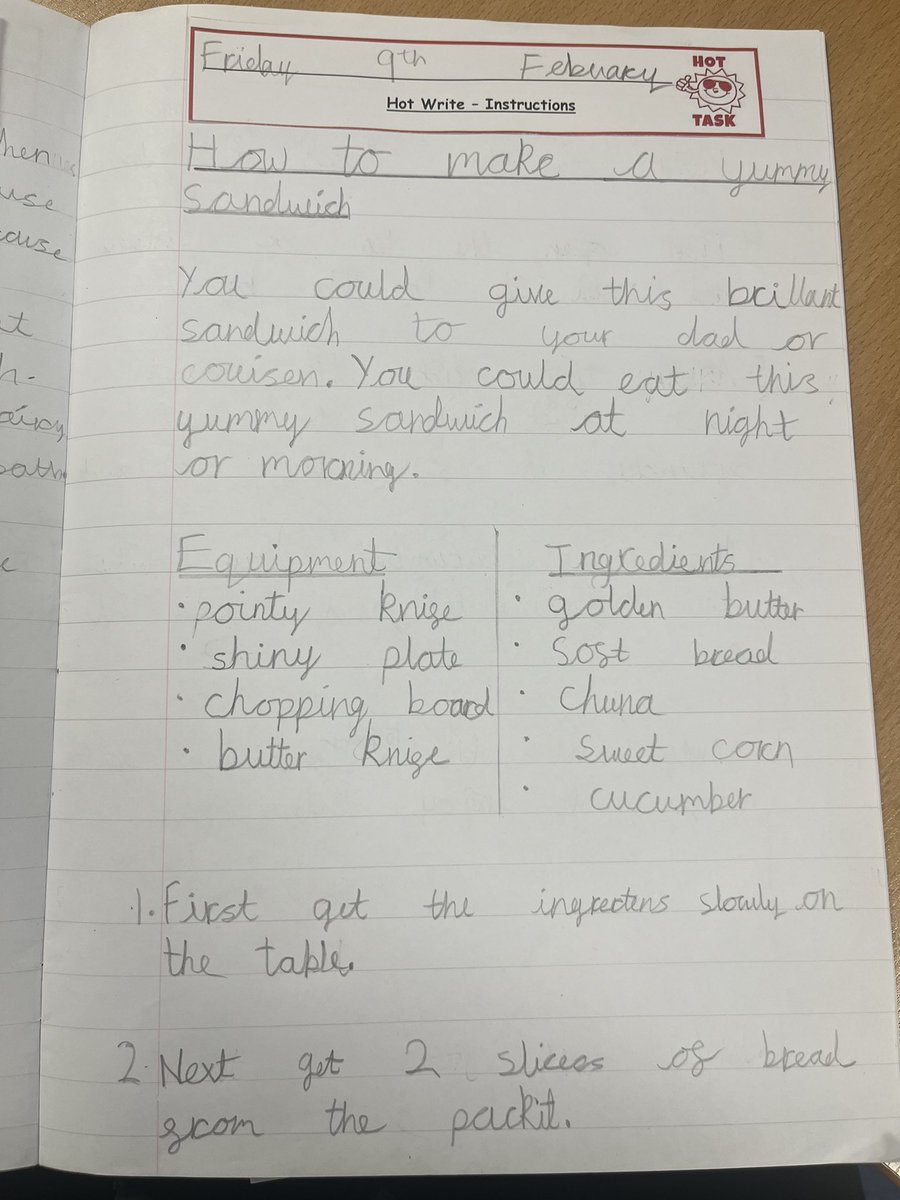 Friday 9th February
HOT
TASK
Hot Write - Instructions
How to make a yummy
sandwich
You could give this brillant
sandwich to your dad or
couisen. You could eat this
yummy sandwich at night
or morning.
Equipment
• pointy knife
• shiny plate
• chopping board
• butter knife
Ingredients
• golden butter
• soft bread
• Chuna
• sweet corn
• cucumber
1. First get the ingrectens slowly on
the table.
2. Next get 2 slices of bread
from the packit.
hen
use
ause
t
h-